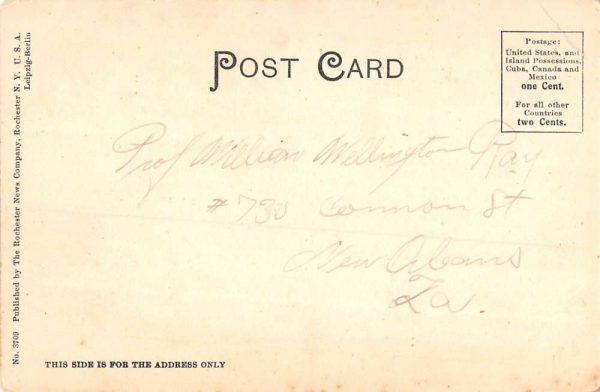 POST CARD
Postage:
United States, and
Island Possessions,
Cuba, Canada and
Mexico
one Cent.
For all other
Countries
two Cents.
No. 3709 Published by The Rochester News Company, Rochester N. Y. U. S. A.
Leipzig-Berlin
Prof William Wellington Ray
#730 Common St
New Orleans
La.
THIS SIDE IS FOR THE ADDRESS ONLY